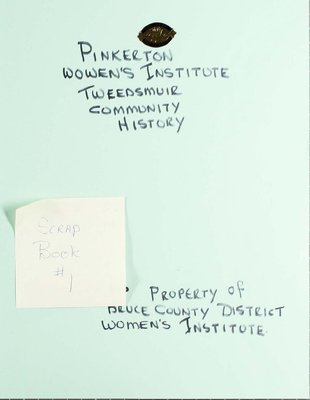 PINKERTON
WOWEN'S INSTITUTE
TWEEDSMUIR
COMMUNITY
HISTORY
SCRAP
BOOK
#1
PROPERTY OF
BRUCE COUNTY DISTRICT
WOMEN'S INSTITUTE.